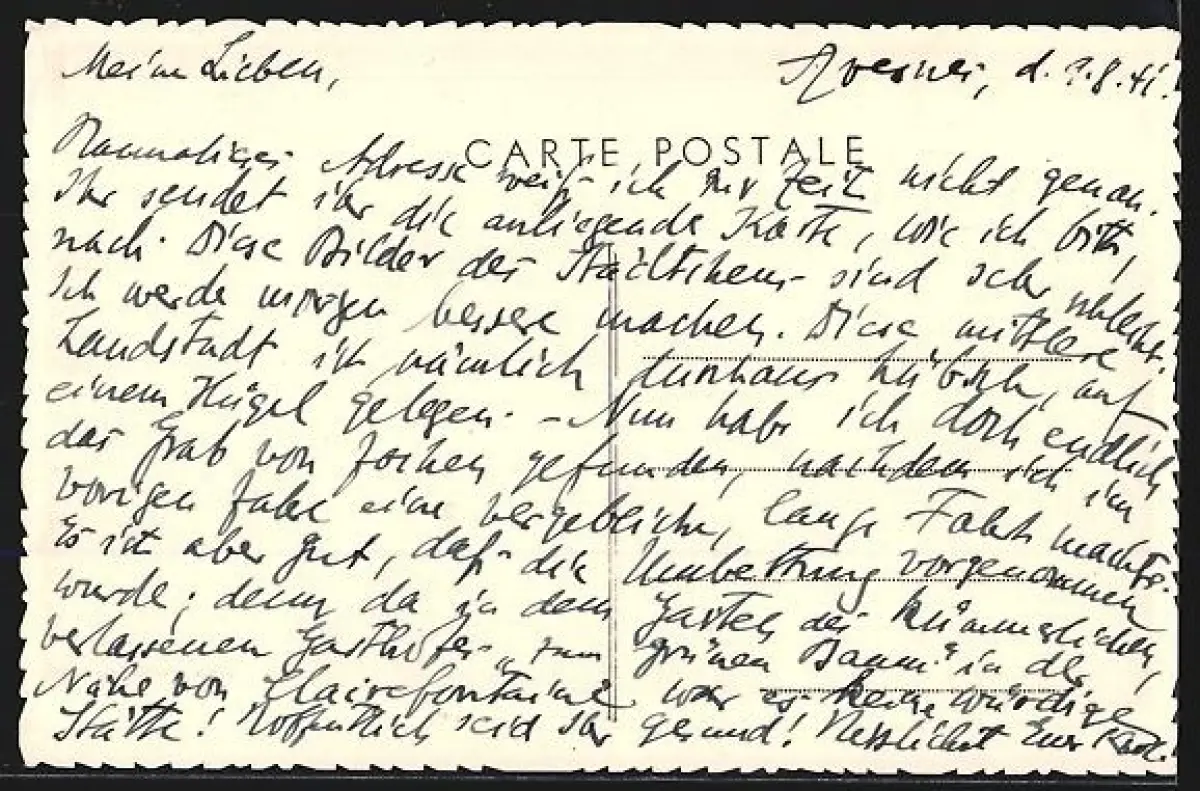 Meine Lieben,
Avesnes, d. 9.8.41.
CARTE POSTALE
Adresse weiß ich zur Zeit nicht genau.
Ihr sendet ihr die anliegende Karte, wie ich bitte,
nach. Diese Bilder des Städtchens sind sehr schlecht.
Ich werde morgen bessere machen. Diese mittlere
Landstadt ist nämlich durchaus hübsch, auf
einem Hügel gelegen. – Nun habe ich doch endlich
das Grab von Jochen gefunden, nachdem ich im
vorigen Jahr eine vergebliche, lange Fahrt machte.
Es ist aber gut, daß die Umbettung vorgenommen
wurde; denn da in dem Garten des kümmerlichen,
verlassenen Gasthofes „zum grünen Baum" in der
Nähe von Clairefontaine war es keine würdige
Stätte! Hoffentlich seid Ihr gesund! Herzlichst Euer Karl.